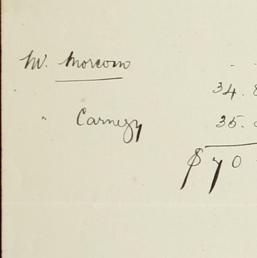 Mr. Morcom 34.
" Carnegy 35.
$ 70